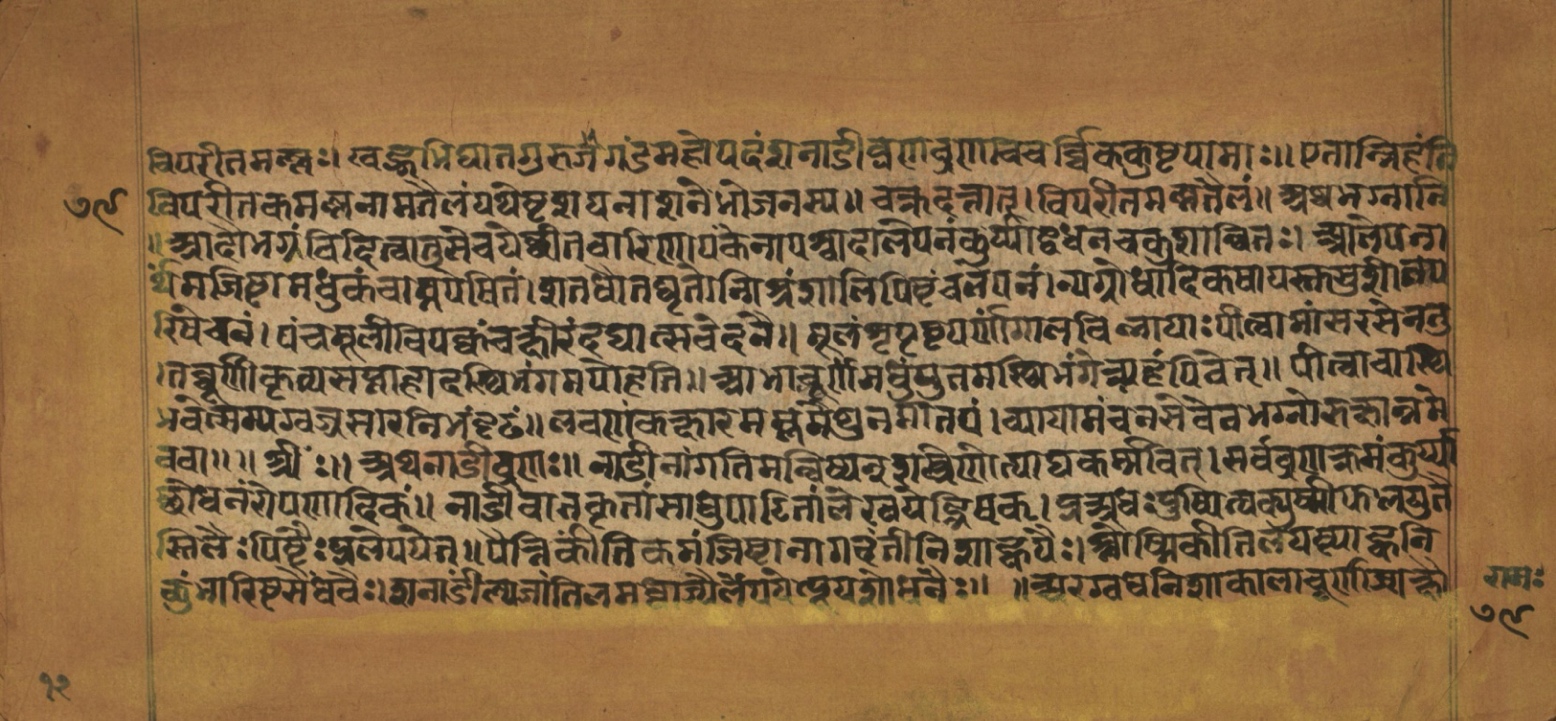 विपरीतमल्लः। खड्गाभिघातगुरुगंडमहोपदंशनाडीव्रणव्रणविचर्च्चिककुष्टपामाः॥ एतान्निहंति
७९ विपरीतकमल्लनामतैलंयथेष्टशयनाशनभोजनस्य॥ चक्रदत्तात्। विपरीतमल्लतैलं॥ अथभग्नानि
॥आदौभग्नंविदित्वातुसेचयेच्छीतवारिणा। पंकेनापश्चादालेपनंकुर्य्याद्बंधनंचकुशान्वितः। आलेपना
र्थंमंजिष्टामधुकंचाम्लपेषितं। शतधौतघृतोन्मिश्रंशालिपिष्टंचलेपनं। न्यग्रोधादिकषायस्तुसुशीतलप
रिषेचनं। पंचमूलीविपक्कंचक्षीरंदद्यात्सवेदने॥ मूलंशृगालविन्नायाःपीत्वामांसरसेनतु
।तच्चूर्णीकृत्यसप्ताहादस्थिभंगमपोहति॥ आभाचूर्णंमधुयुतमस्थिभंगेत्र्यहंपिबेत्॥ पीत्वाचास्थि
भवेत्सम्यग्वज्रसारनिभंदृढं॥ लवणंकक्षारमम्लंमैथुनमातपं। व्यायामंचनसेवेतभग्नोरुक्षान्नमे
ववा॥॥ श्रीः॥ अथनाडीव्रणाः॥ नाडीनांगतिमन्विष्यशस्त्रेणोत्पाट्यकर्म्मवित्। सर्वव्रणक्रमंकुर्य्या
च्छोधनंरोपणादिकं॥ नाडींवातकृतांसाधुपाटितांलेखयेद्भिषक्। प्रत्यक्पुष्पीफलयुतै
स्तिलैःपिष्टैःप्रलेपयेत्॥ पैत्तिकींतिलमंजिष्टानागदंतीनिशाह्वयैः। श्लैष्मिकींतिलयष्ट्याह्वनि
कुंभारिष्टसैंधवैः। शल्यजांतिलमध्वाज्यैर्लेपयेत्पूयशोधनैः॥ ॥आरग्वधनिशाकालाचूर्णाज्यक्षौ
रामः
७९
१२